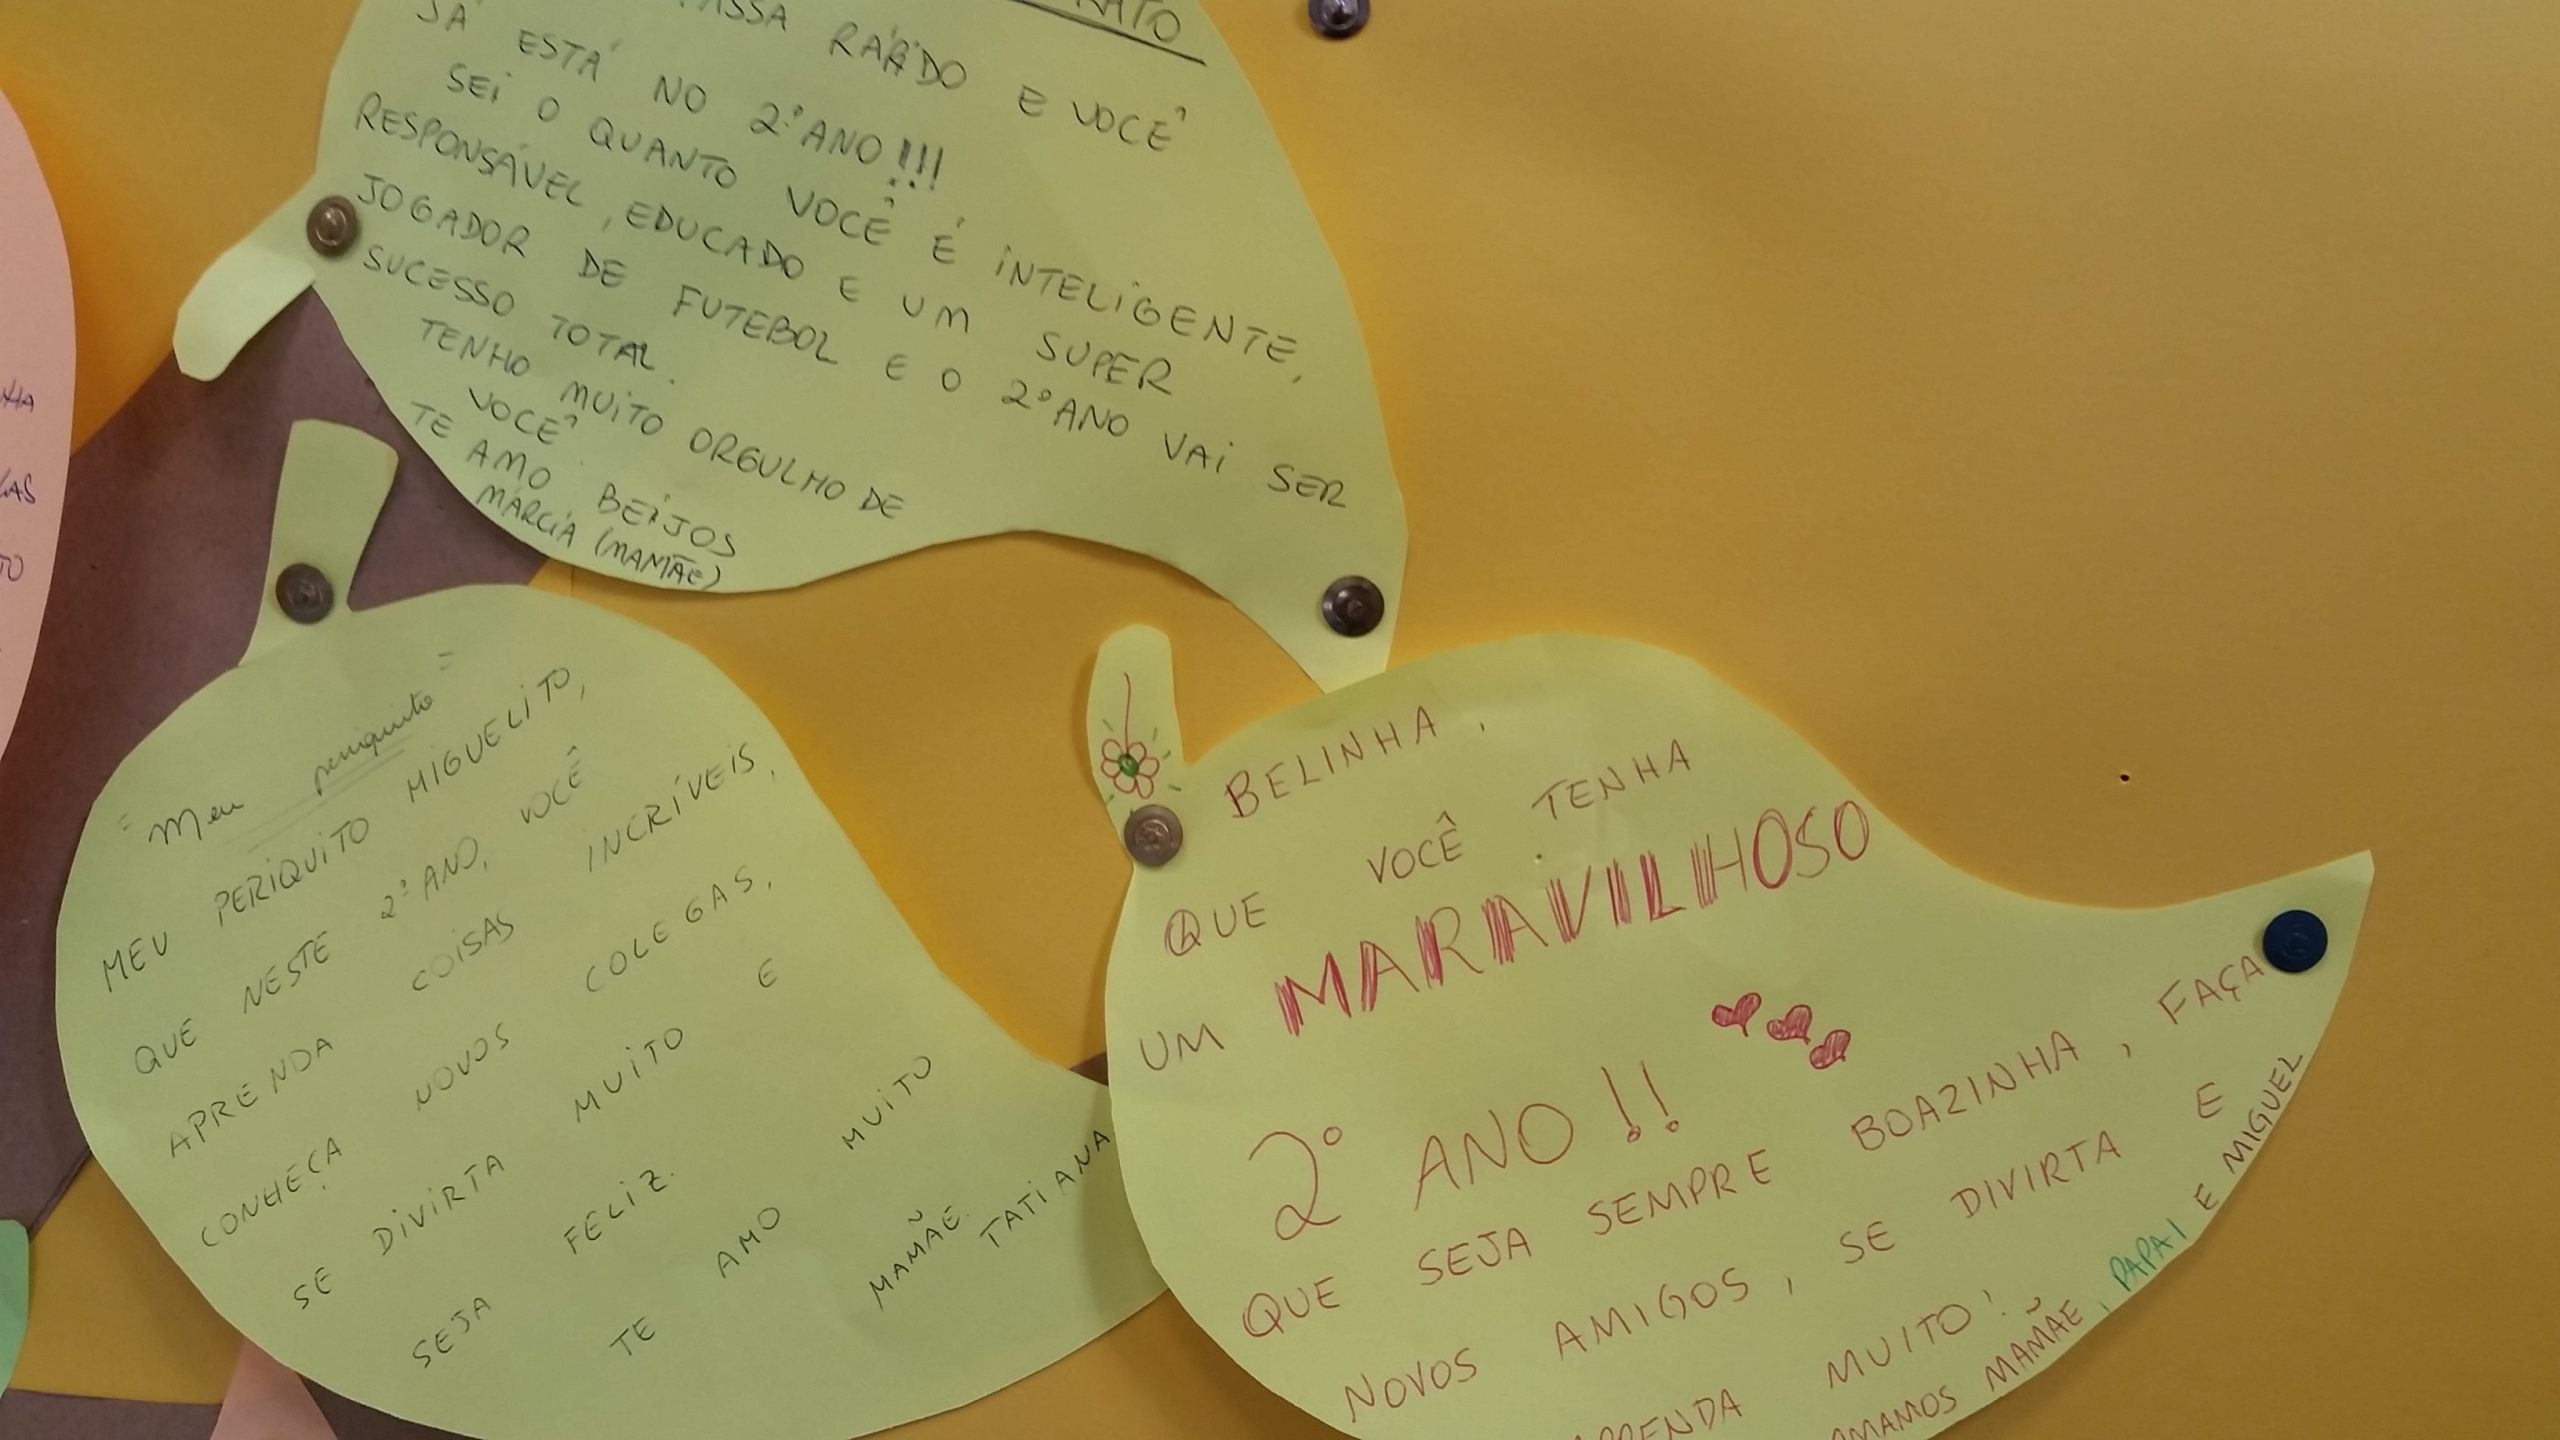 PASSA RÁPIDO E VOCÊ
JÁ ESTÁ NO 2º ANO!!!
SEI O QUANTO VOCÊ É INTELIGENTE,
RESPONSÁVEL, EDUCADO E UM SUPER
JOGADOR DE FUTEBOL E O 2º ANO VAI SER
SUCESSO TOTAL.
TENHO MUITO ORGULHO DE
VOCÊ
TE AMO BEIJOS
MÁRCIA (MAMÃE)
"Meu periquito"
MEU PERIQUITO MIGUELITO,
QUE NESTE 2º ANO, VOCÊ
APRENDA COISAS INCRÍVEIS,
CONHEÇA NOVOS COLEGAS,
SE DIVIRTA MUITO E
SEJA FELIZ.
TE AMO MUITO
MAMÃE TATIANA
BELINHA,
QUE VOCÊ TENHA
UM MARAVILHOSO
2º ANO!!
QUE SEJA SEMPRE BOAZINHA, FAÇA
NOVOS AMIGOS, SE DIVIRTA E
APRENDA MUITO!
AMAMOS MAMÃE, PAPAI E MIGUEL